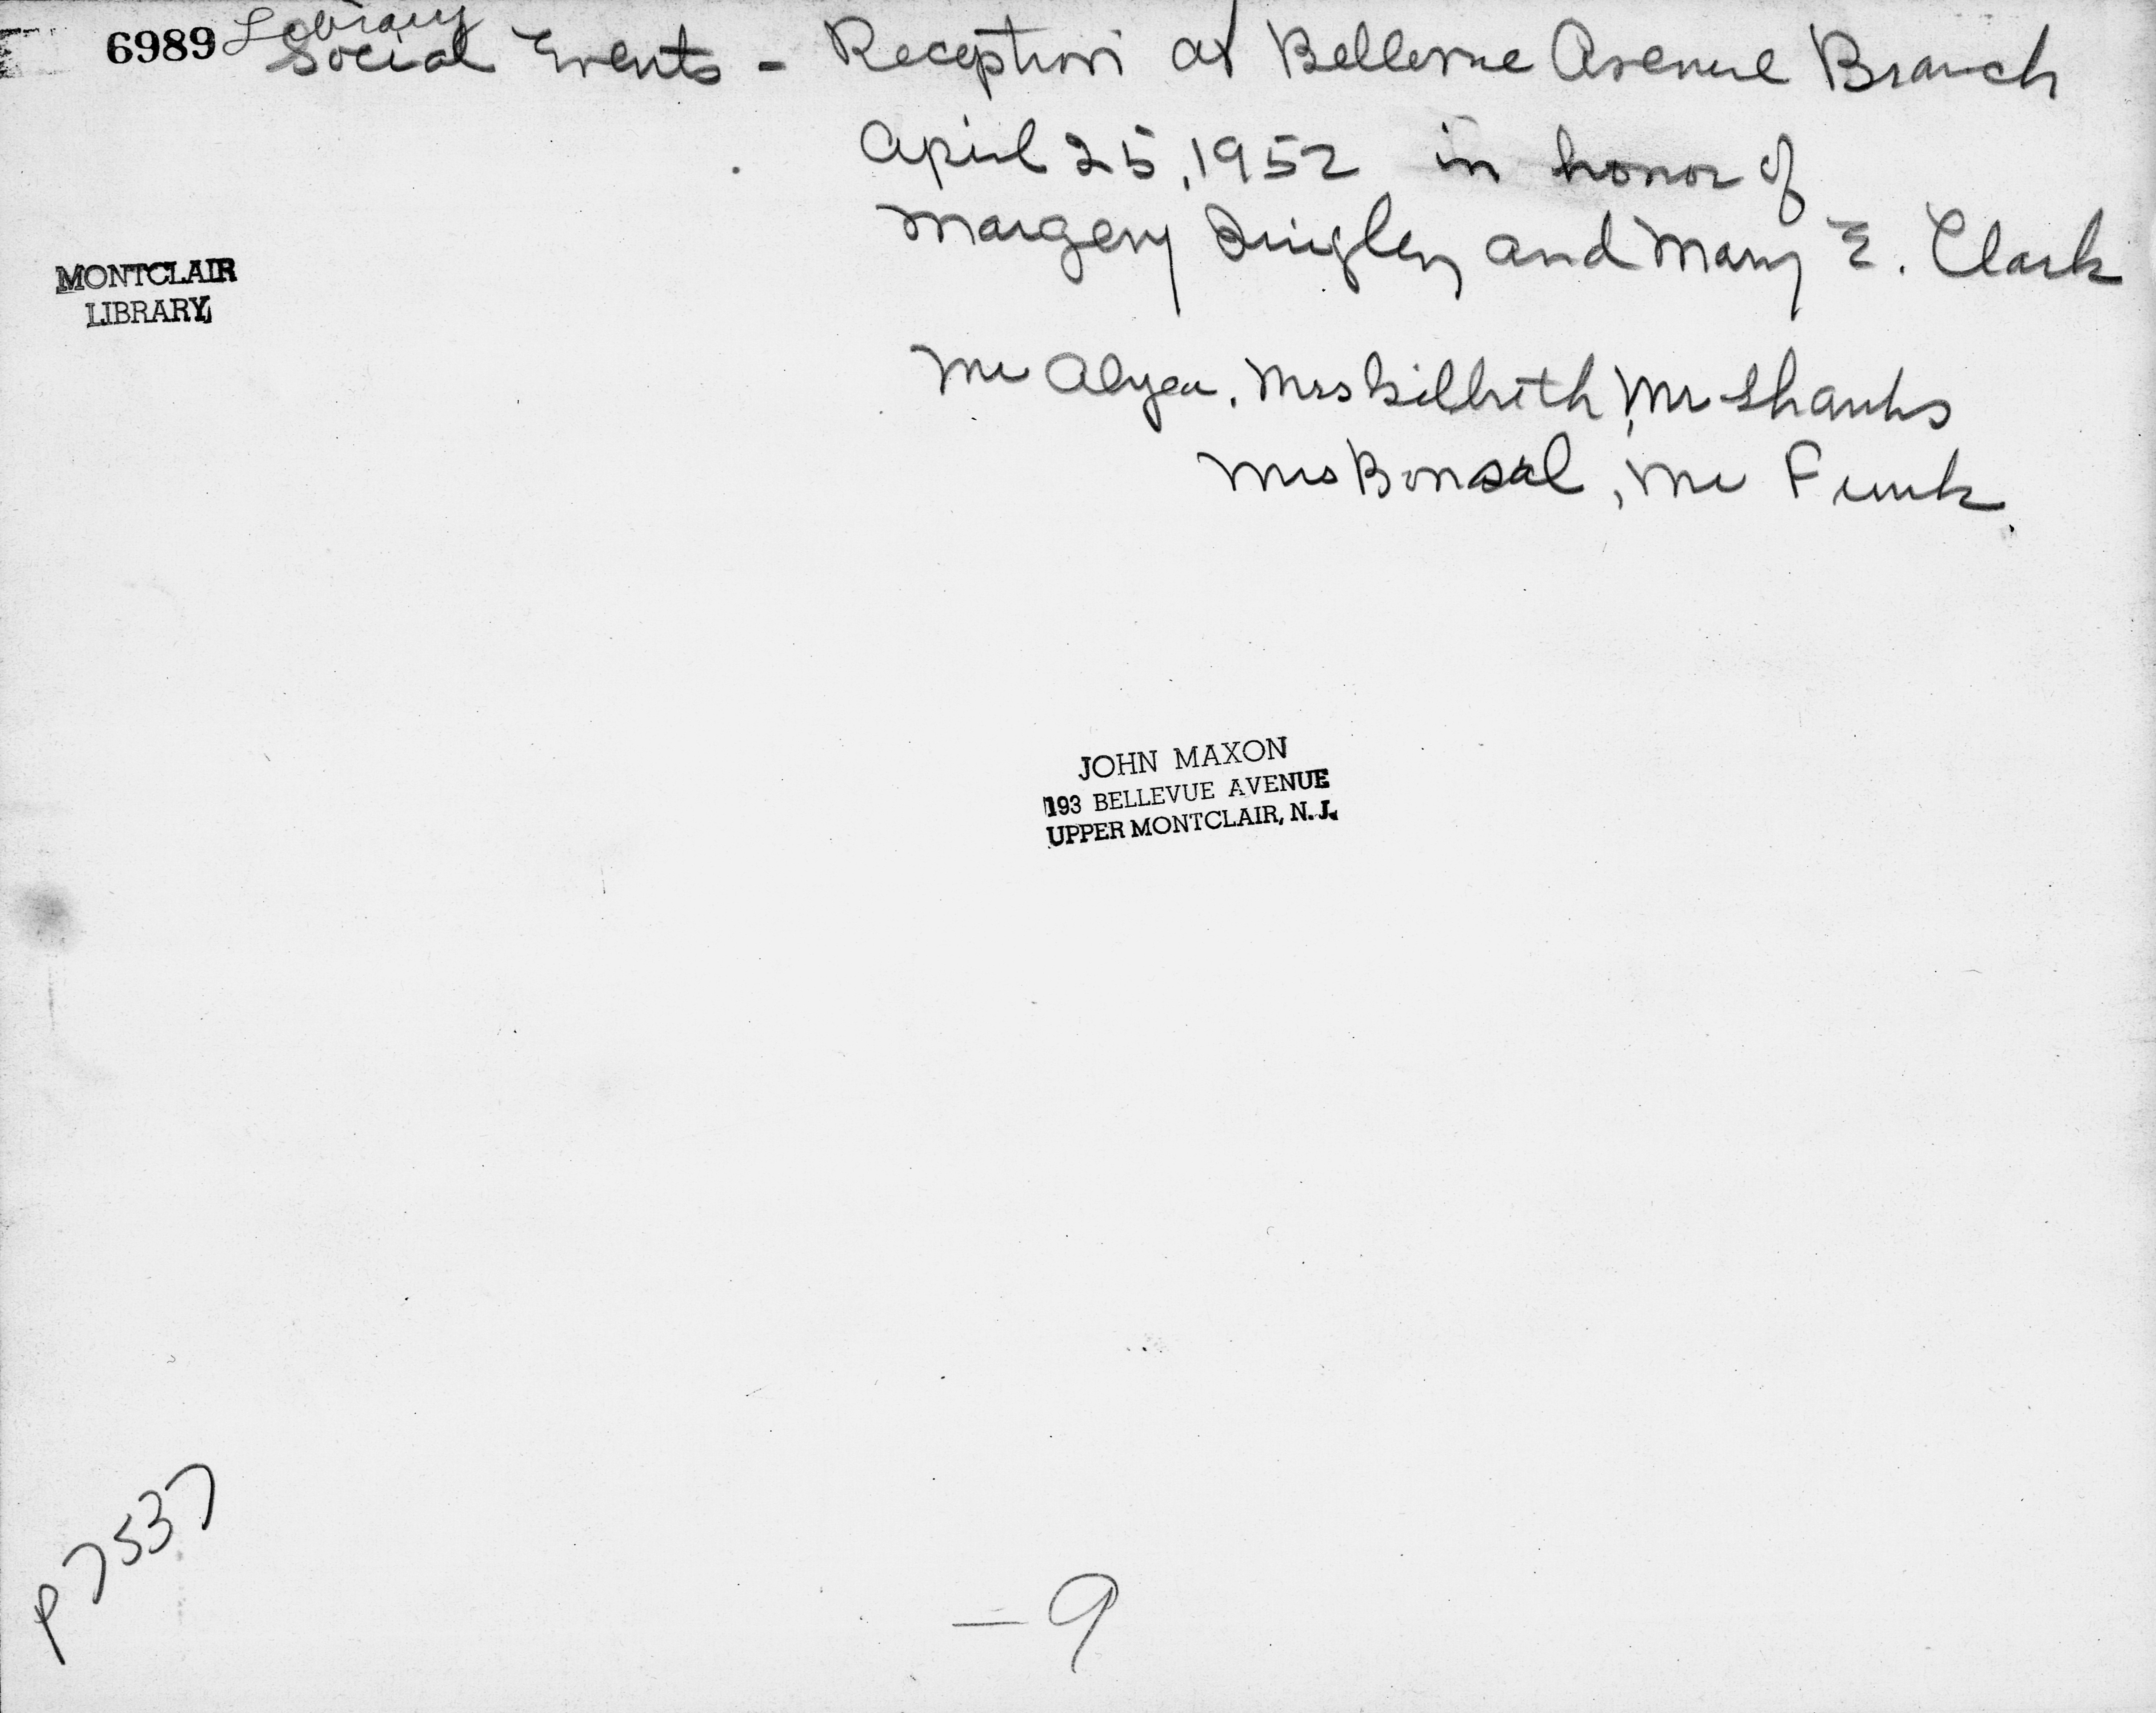 6989 Library
Social Events - Reception at Bellevue Avenue Branch
April 25, 1952 in honor of
Margery Quigley and Mary E. Clark
MONTCLAIR
LIBRARY
Mr Alyea, Mrs Gilbreth, Mr Shanks
Mrs Bonsal, Mr Funk.
JOHN MAXON
193 BELLEVUE AVENUE
UPPER MONTCLAIR, N. J.
P7537
—9